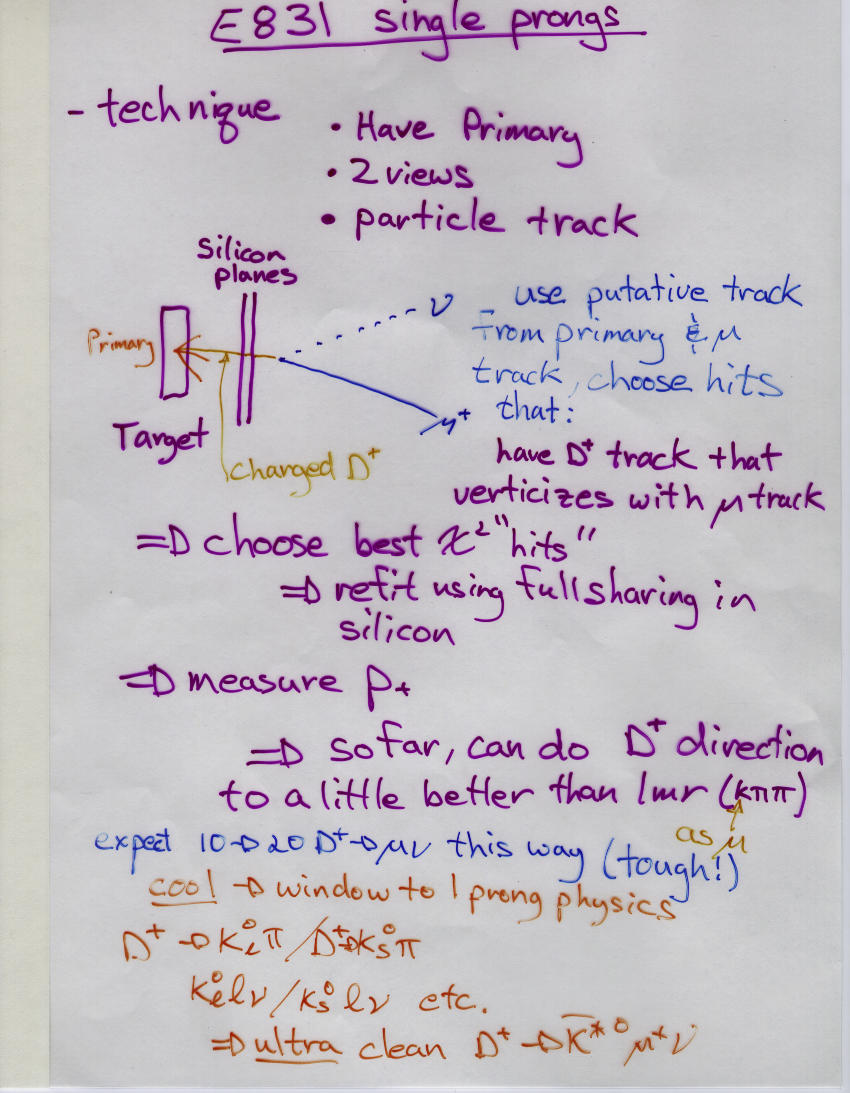 E831 single prongs
- technique
• Have Primary
• 2 views
• particle track
Silicon
planes
Primary
Target
charged D⁺
ν
μ⁺
– use putative track
from primary & μ
track, choose hits
that:
have D⁺ track that
verticizes with μ track
⇒ choose best χ² "hits"
⇒ refit using full sharing in
silicon
⇒ measure P₊
⇒ so far, can do D⁺ direction
to a little better than 1mr (kππ)
as μ
expect 10→20 D⁺→μν this way (tough!)
cool → window to 1 prong physics
D⁺ → K⁰_L π / D⁺→K⁰_s π
K⁰_L lν / K⁰_s lν etc.
⇒ ultra clean D⁺ → K̅*⁰ μ⁺ ν